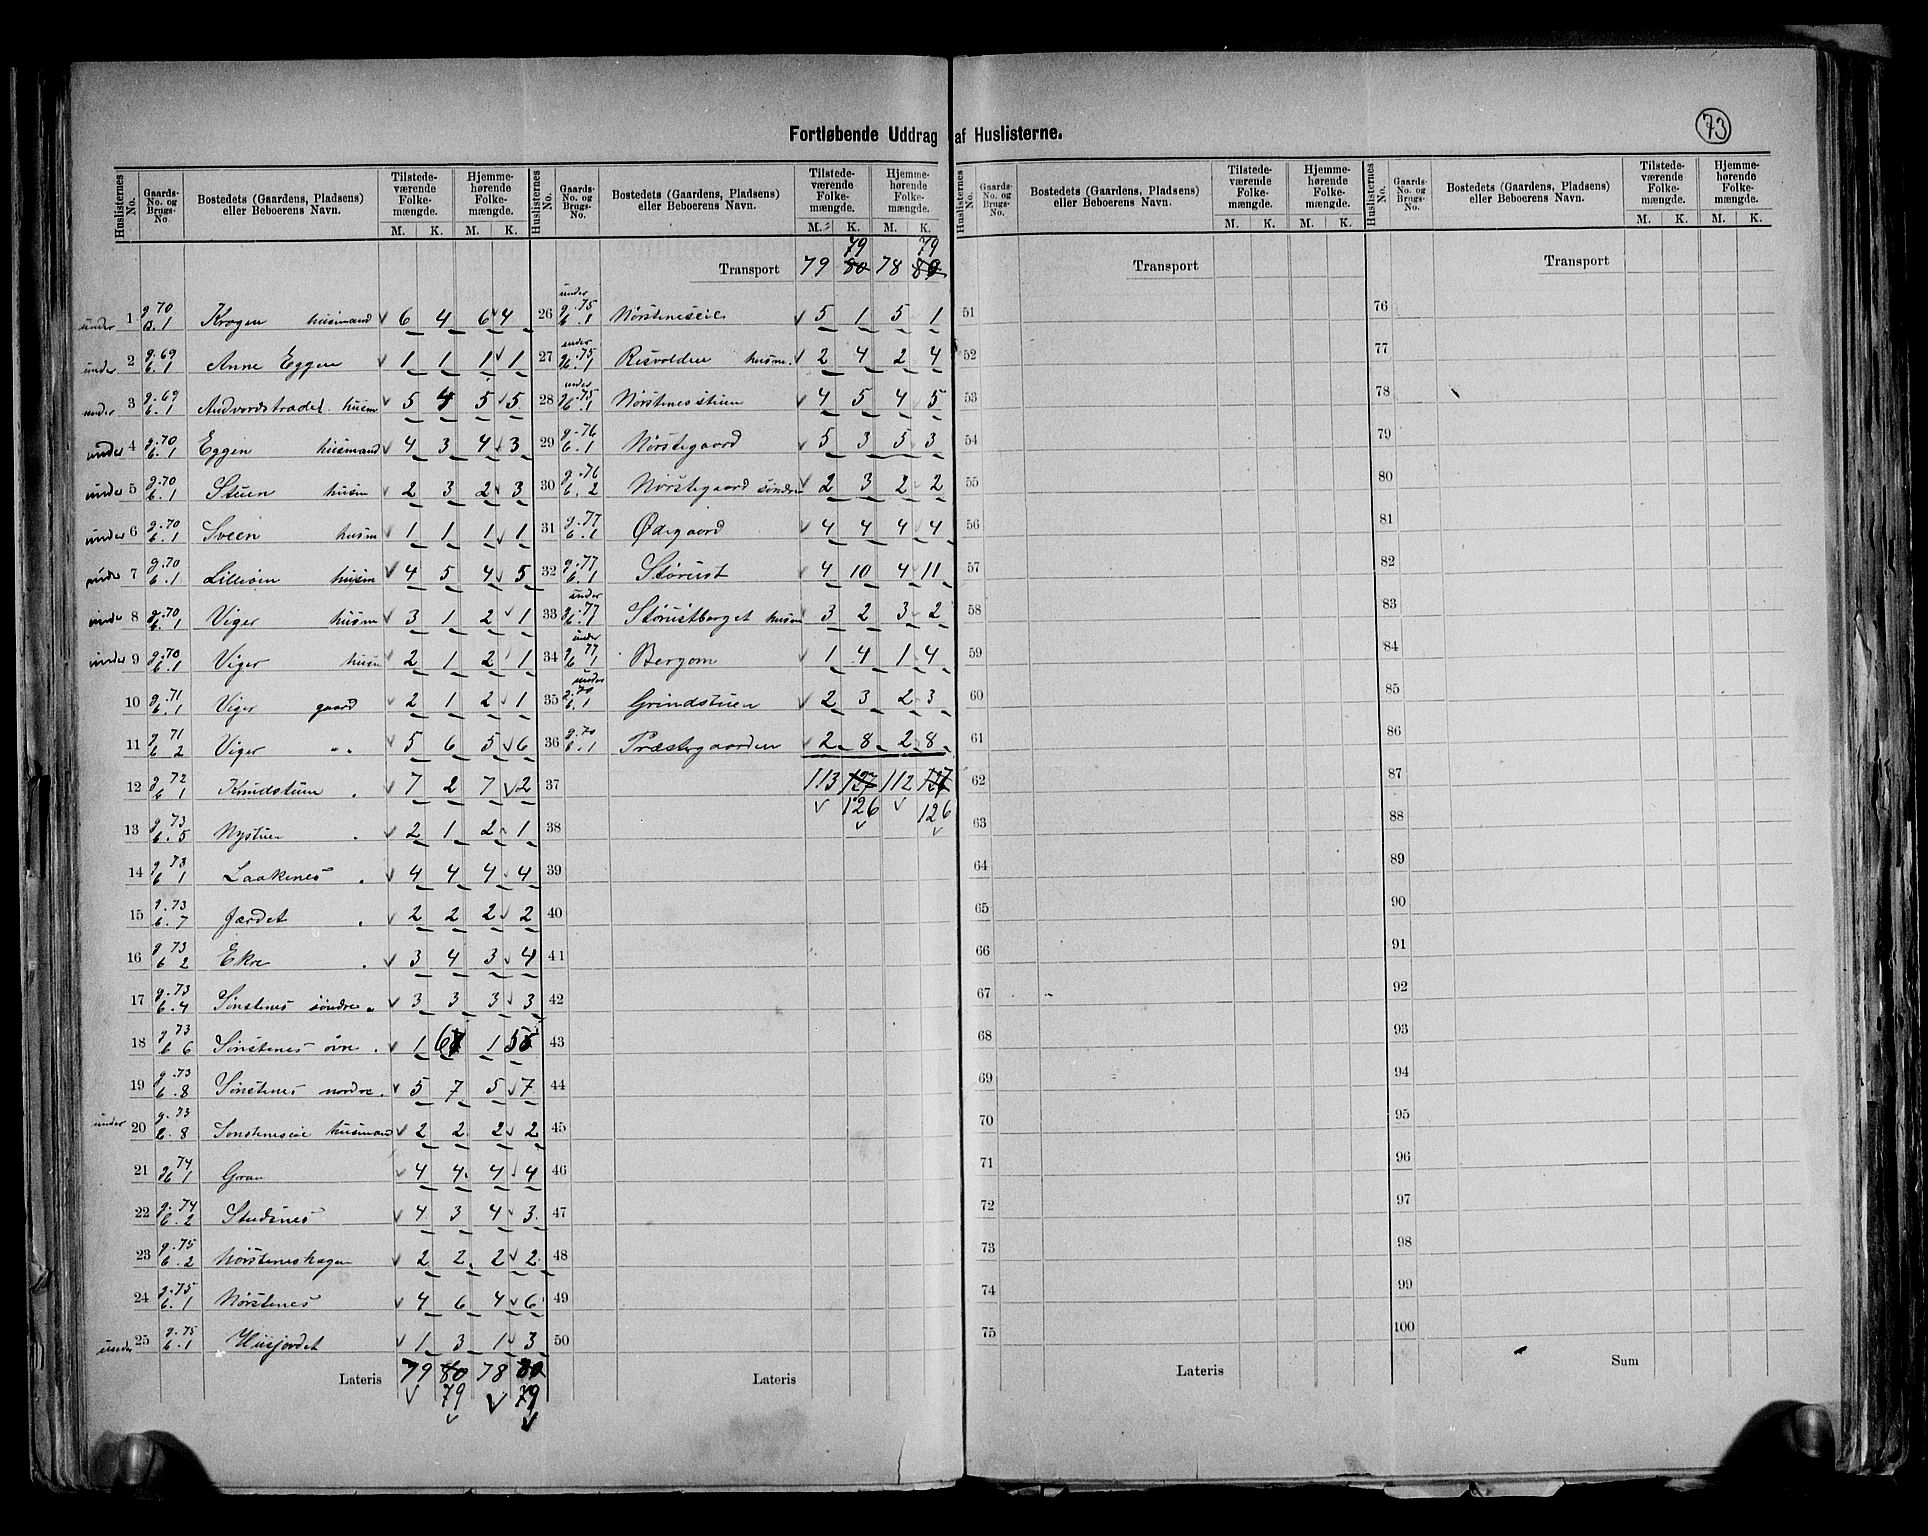 Fortløbende Uddrag af Huslisterne.
73
Huslisternes No. Gaards-No. og Brugs-No. Bostedets (Gaardens, Pladsens) eller Beboerens Navn. Tilstede-værende Folke-mængde. M. K. Hjemme-hørende Folke-mængde. M. K.
under 1 g. 70 B. 1 Krogen husmand 6 4 6 4
under 2 g. 69 b. 1 Anne Eggen 1 1 1 1
under 3 g. 69 b. 1 husm 5 4 5 5
under 4 g. 70 b. 1 Eggen husmand 4 3 4 3
under 5 g. 70 b. 1 Stuen husm 2 3 2 3
under 6 g. 70 b. 1 Sveen husm 1 1 1 1
under 7 g. 70 b. 1 Lilleøien husm 4 5 4 5
under 8 g. 70 b. 1 Viger husm 3 1 2 1
under 9 g. 70 b. 1 Viger husm 2 1 2 1
10 g. 71 b. 1 Viger gaard 2 1 2 1
11 g 71 b 2 Viger " 5 6 5 6
12 g 72 b 1 Knudstuen " 7 2 7 2
13 g. 73 b. 5 Nystuen " 2 1 2 1
14 g. 73 b 1 Laakenes " 4 4 4 4
15 g. 73 b. 7 Jærdet " 2 2 2 2
16 g 73 b 2 Ekre " 3 4 3 4
17 g. 73 b. 4 Sønstenes søndre " 3 3 3 3
18 g 73 b 6 Sønstenes øvre " 1 6 1 5
19 g. 73 b. 8 Sønstenes nordre " 5 7 5 7
under 20 g. 73 b. 8 Sønsteneseie husmand 2 2 2 2
21 g. 74 b. 1 Gran 4 4 4 4
22 g. 74 b. 2 Studsnes 4 3 4 3
23 g. 75 b. 2 Nørsteneshagen 2 2 2 2
24 g. 75 b. 1 Nørstenes 4 6 4 6
under 25 g. 75 b. 1 Husjordet 1 3 1 3
Lateris 79 80 78 80
79 79
Huslisternes No. Gaards-No. og Brugs-No. Bostedets (Gaardens, Pladsens) eller Beboerens Navn. Tilstede-værende Folke-mængde. M. K. Hjemme-hørende Folke-mængde. M. K.
79 79
Transport 79 80 78 80
26 under g. 75 b. 1 Nørsteneseie 5 1 5 1
27 under g. 75 b. 1 Risvolden husm. 2 4 2 4
28 under g. 75 b. 1 Nørstenesstuen 4 5 4 5
29 g. 76 b. 1 Nørstegaard 5 3 5 3
30 g. 76 b. 2 Nørstegaard søndre 2 3 2 2
31 g. 77 b. 1 Ødegaard 4 4 4 4
32 g. 77 b. 1 Størust 4 10 4 11
33 under g. 77 b. 1 Størustberget husm 3 2 3 2
34 under g. 77 b. 1 Bergom 1 4 1 4
35 under g. 70 b. 1 Grindstuen 2 3 2 3
36 g. 70 b. 1 Præstegaarden 2 8 2 8
37 113 127 112 127
126 126
38
39
40
41
42
43
44
45
46
47
48
49
50
Lateris
Huslisternes No. Gaards-No. og Brugs-No. Bostedets (Gaardens, Pladsens) eller Beboerens Navn. Tilstede-værende Folke-mængde. M. K. Hjemme-hørende Folke-mængde. M. K.
Transport
51
52
53
54
55
56
57
58
59
60
61
62
63
64
65
66
67
68
69
70
71
72
73
74
75
Lateris
Huslisternes No. Gaards-No. og Brugs-No. Bostedets (Gaardens, Pladsens) eller Beboerens Navn. Tilstede-værende Folke-mængde. M. K. Hjemme-hørende Folke-mængde. M. K.
Transport
76
77
78
79
80
81
82
83
84
85
86
87
88
89
90
91
92
93
94
95
96
97
98
99
100
Sum